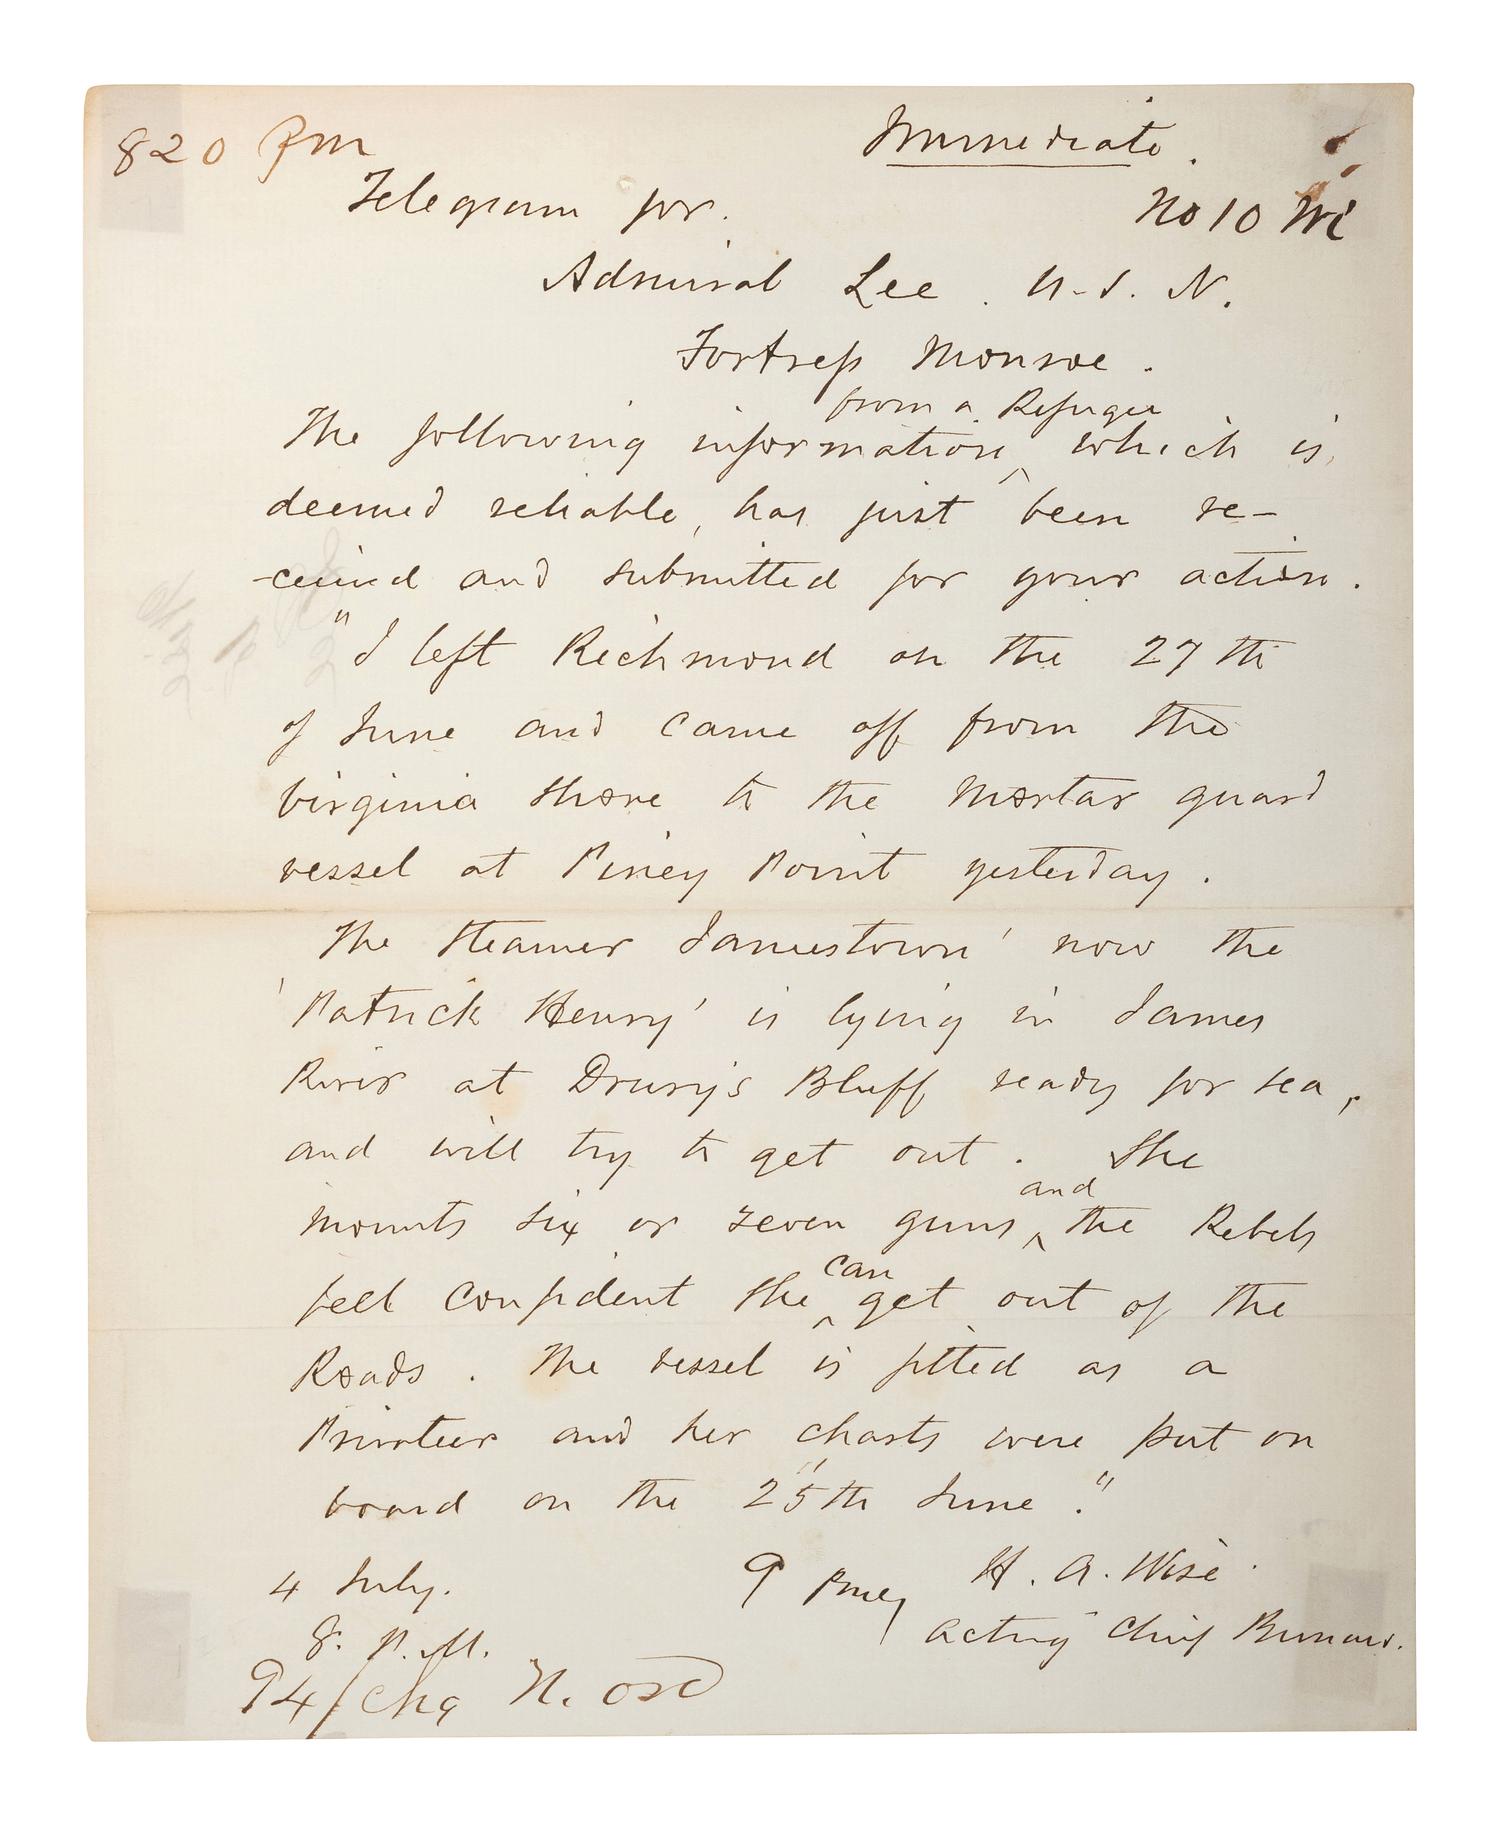 820 Pm
Immediate.
Telegram for.
No 10 Wi
Admiral Lee. U. S. N.
Fortress Monroe.
from a Refugee
The following information ‸ which is,
deemed reliable, has just been re-
-ceived and submitted for your action.
"I left Richmond on the 27th
of June and came off from the
Virginia Shore to the Mortar guard
vessel at Piney Point yesterday.
The Steamer Jamestown' now the
'Patrick Henry' is lying in James
River at Drury's Bluff ready for sea,
and will try to get out. She
and
mounts six or seven guns ‸ the Rebels
can
feel confident she ‸ get out of the
Roads. The vessel is fitted as a
Privateer and her charts were put on
board on the 25th June."
4 July.
8. P. M.
9
H. A. Wise.
Acting Chief Bureau.
94/Chg N. Ord